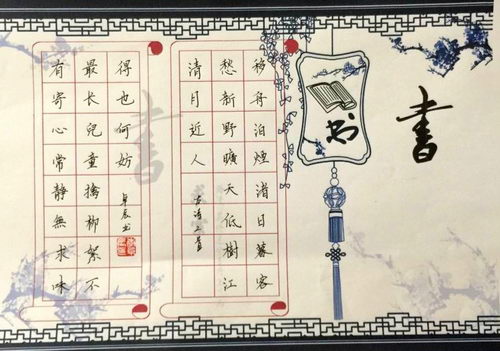 書
书
移舟泊煙渚日暮客
愁新野曠天低樹江
清月近人
古诗二首
書
有寄心常静無求味
最长兒童擒柳絮不
得也何妨